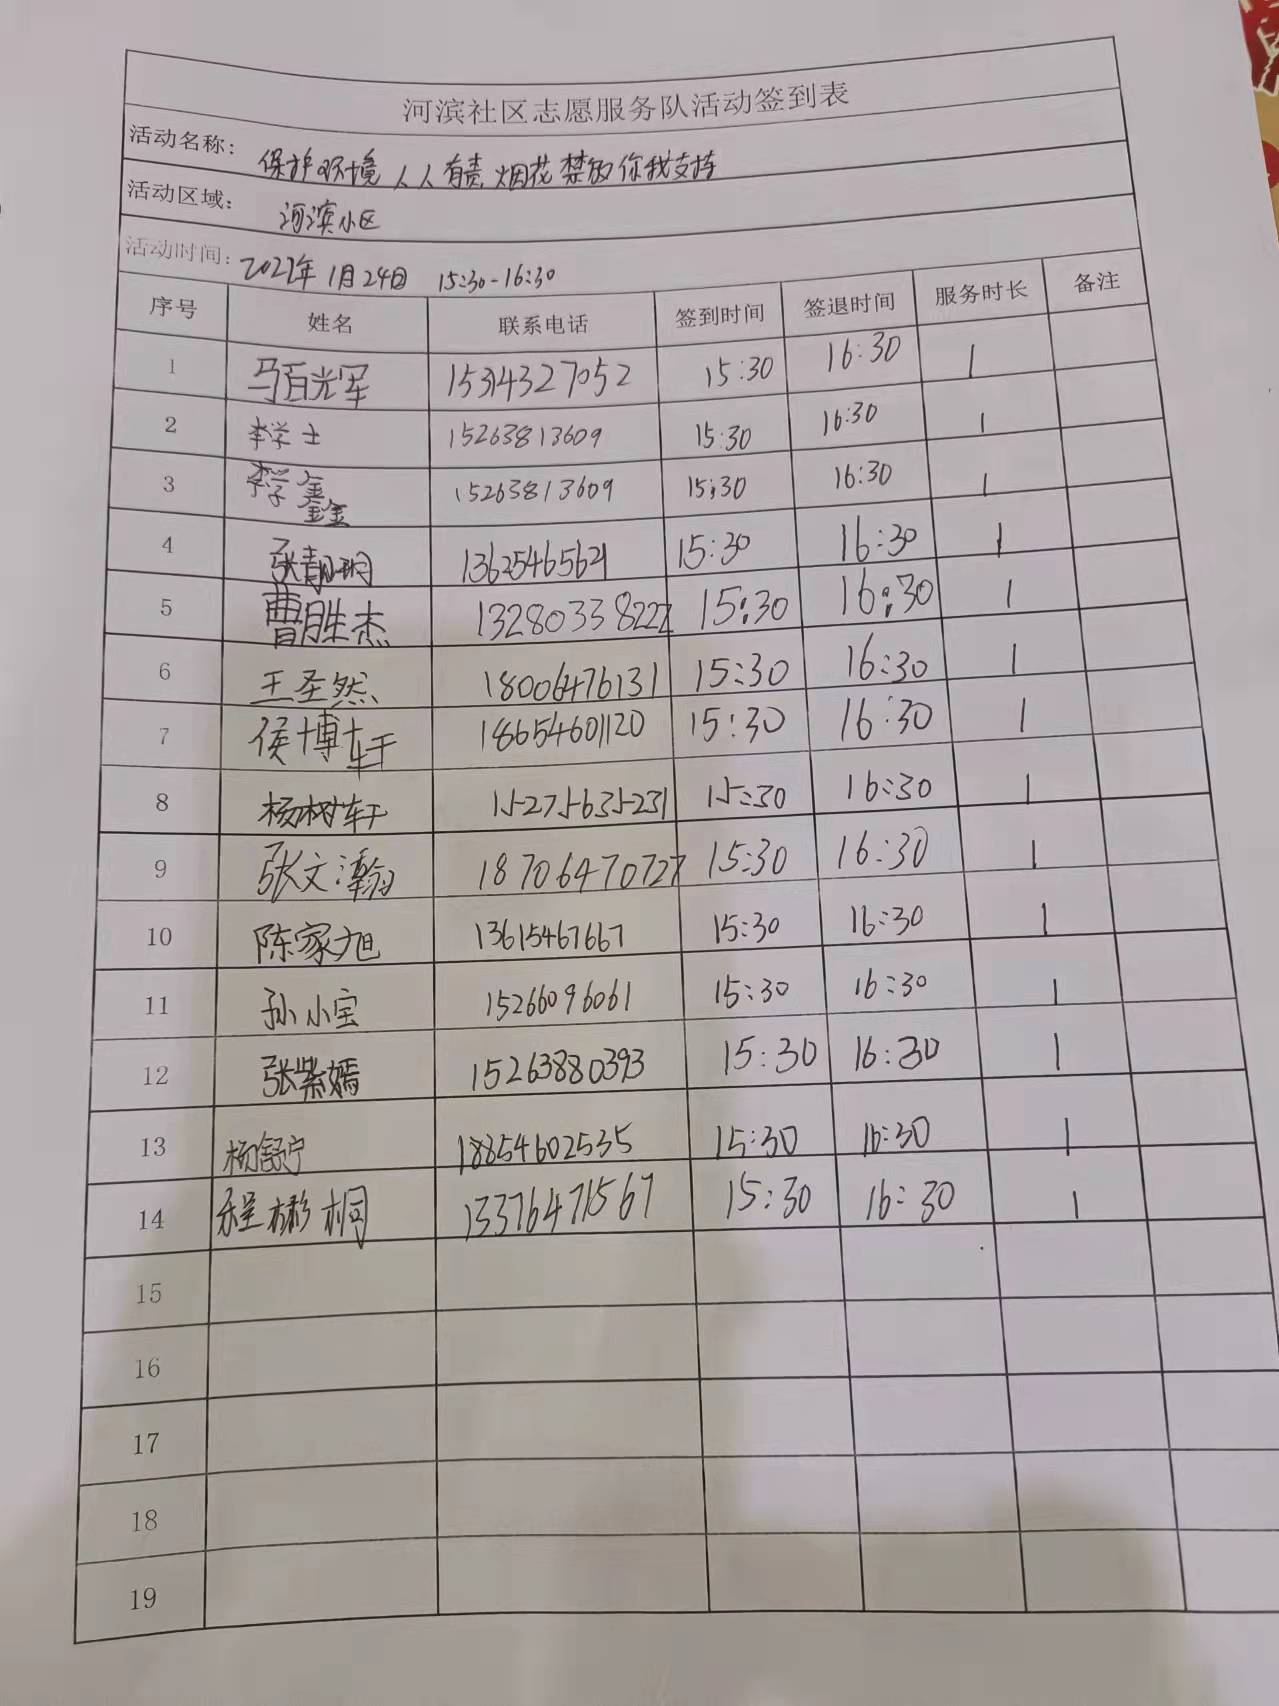 河滨社区志愿服务队活动签到表
活动名称: 保护环境 人人有责 烟花禁放你我支持
活动区域: 河滨小区
活动时间: 2022年1月24日 15:30-16:30
序号 姓名 联系电话 签到时间 签退时间 服务时长 备注
1 马百光军 15314327052 15:30 16:30 1
2 李学士 15263813609 15:30 16:30 1
3 李学鑫 15263813609 15:30 16:30 1
4 张靓玥 13625465621 15:30 16:30 1
5 曹胜杰 13280338222 15:30 16:30 1
6 王圣然 18006476131 15:30 16:30 1
7 侯博轩 18654601120 15:30 16:30 1
8 杨树轩 15275635231 15:30 16:30 1
9 张文瀚 18706470727 15:30 16:30 1
10 陈家旭 13615467667 15:30 16:30 1
11 孙小宝 15266096061 15:30 16:30 1
12 张紫嫣 15263880393 15:30 16:30 1
13 杨舒宁 18854602535 15:30 16:30 1
14 程彬桐 13376471567 15:30 16:30 1
15
16
17
18
19